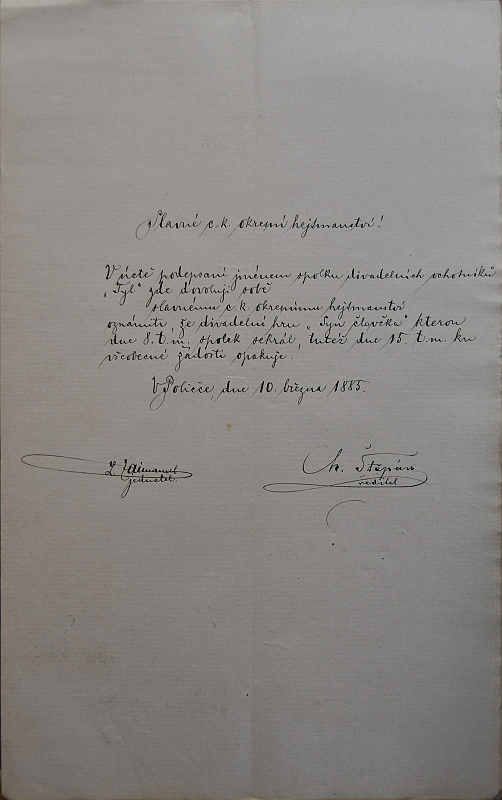 Slavné c. k. okresní hejtmanství!
V úctě podepsaní jménem spolku divadelních ochotníků
„Tyl“ zde dovolují sobě
slavnému c. k. okresnímu hejtmanství
oznámiti, že divadelní hru „Syn člověka“ kterou
dne 8. t. m. spolek sehrál, tutéž dne 15. t. m. ku
všeobecné žádosti opakuje.
V Poličce, dne 10. března 1885.
jednatel
Štěpán
ředitel